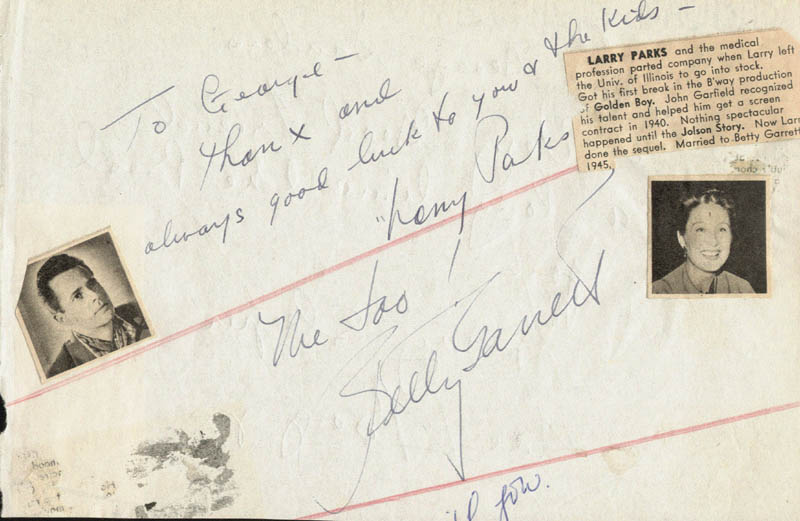 To George —
thanx and
always good luck to you & the kids —
"Larry Parks
LARRY PARKS and the medical
profession parted company when Larry left
the Univ. of Illinois to go into stock.
Got his first break in the B'way production
of Golden Boy. John Garfield recognized
his talent and helped him get a screen
contract in 1940. Nothing spectacular
happened until the Jolson Story. Now Larr
done the sequel. Married to Betty Garrett
1945.
Me too!
Betty Garrett